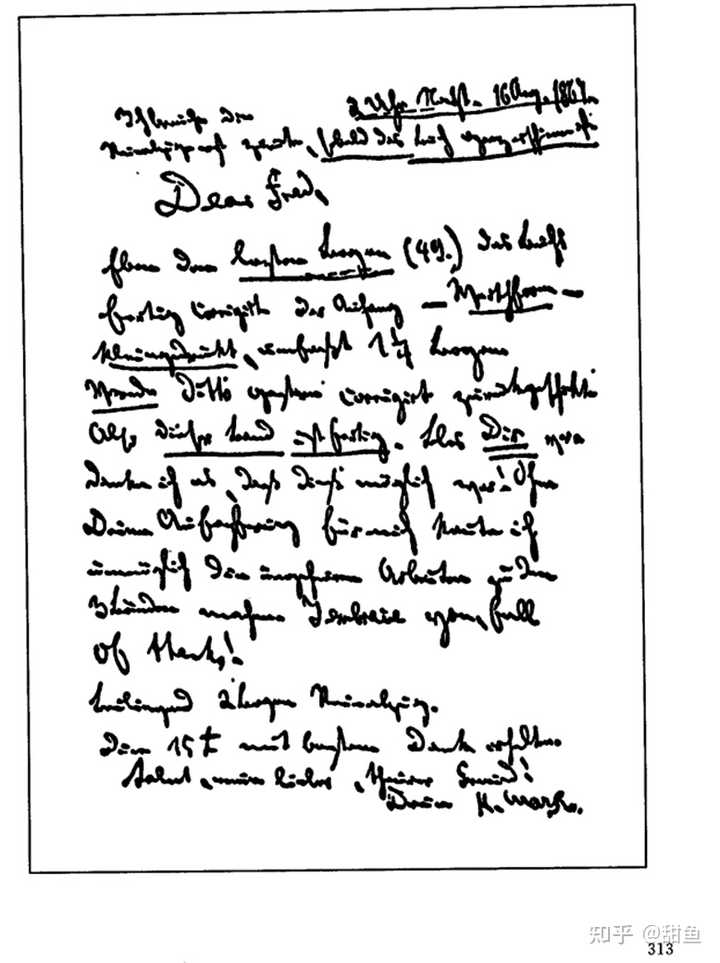 2 Uhr Nacht. 16 Aug. 1867.
Ich brauche den
Reinabzug erst zurück, sobald das Buch ganz erschienen ist.
Dear Fred,
Eben den letzten Bogen (49.) des Buchs
fertig corrigirt. Der Anhang — Werthform —
kleingedruckt, umfaßt 1 1/4 Bogen.
Vorrede ditto gestern corrigirt zurückgeschickt.
Also dieser Band ist fertig. Blos Dir ver
danke ich es, daß dieß möglich war! Ohne
Deine Aufopferung für mich konnte ich
unmöglich die ungeheuren Arbeiten zu den
3 Bänden machen. I embrace you, full
of thanks!
Beiliegend 2 Bogen Reinabzug.
Die 15 £ mit bestem Dank erhalten.
Salut, mein lieber, theurer Freund!
Dein K. Marx.
知乎 @甜鱼
313